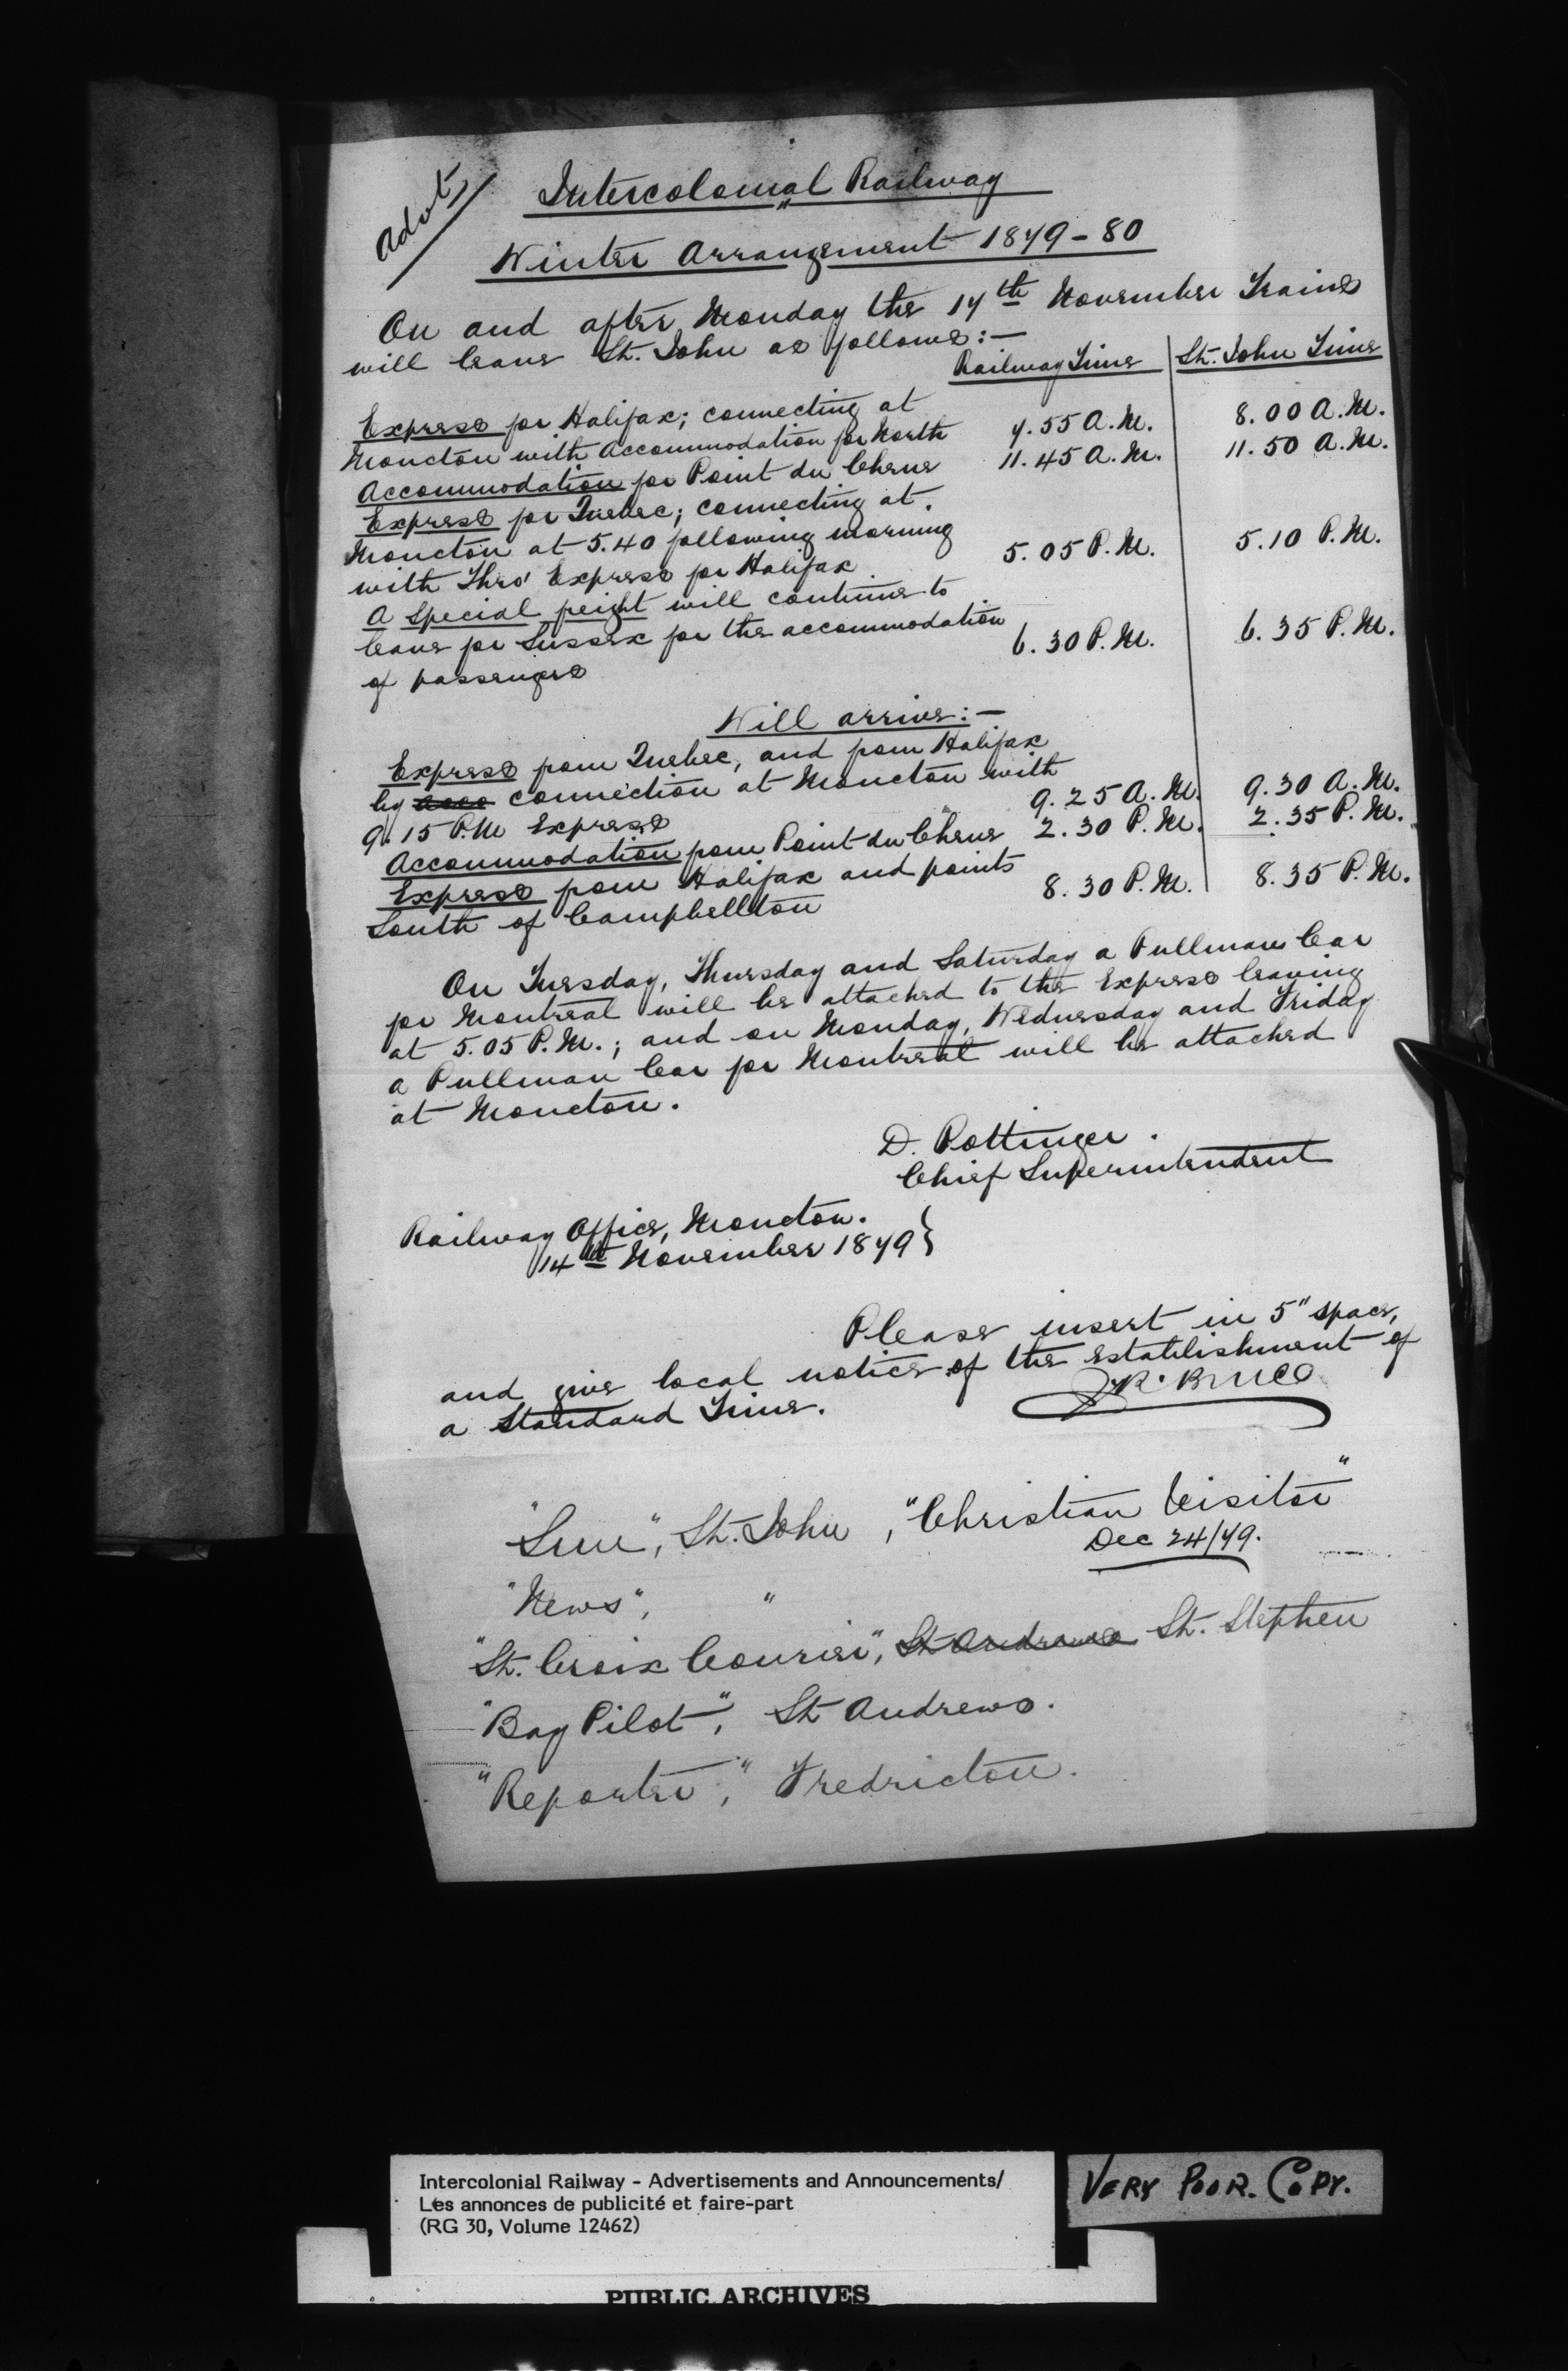 Advt,
Intercolonial Railway
"
Winter Arrangement 1879-80
On and after Monday the 17th November Trains
will leave St. John as follows:-
Railway Time St. John Time
Express for Halifax; connecting at
Moncton with Accommodation for North 7.55 A.M. 8.00 A.M.
Accommodation for Point du Chene 11.45 A.M. 11.50 A.M.
Express for Quebec; connecting at
Moncton at 5.40 following morning
with Thro' Express for Halifax 5.05 P.M. 5.10 P.M.
A Special freight will continue to
leave for Sussex for the accommodation
of passengers 6.30 P.M. 6.35 P.M.
Will arrive:-
Express from Quebec, and from Halifax
by acco connection at Moncton with
9.15 P.M Express 9.25 A.M. 9.30 A.M.
Accommodation from Point du Chene 2.30 P.M. 2.35 P.M.
Express from Halifax and points
South of Campbellton 8.30 P.M. 8.35 P.M.
On Tuesday, Thursday and Saturday a Pullman Car
for Montreal will be attached to the Express leaving
at 5.05 P.M.; and on Monday, Wednesday and Friday
a Pullman Car for Montreal will be attached
at Moncton.
D. Pottinger.
Chief Superintendent
Railway Office, Moncton.
14th November 1879}
Please insert in 5" space,
and give local notice of the establishment of
a Standard Time.
J.R. Bruce
"Sun", St. John, "Christian Visitor"
Dec 24/79.
"News", "
"St. Croix Courier", St Andrews St. Stephen
"Bay Pilot", St Andrews.
"Reporter", Fredricton.
Intercolonial Railway - Advertisements and Announcements/
Les annonces de publicité et faire-part
(RG 30, Volume 12462)
VERY POOR. COPY.
PUBLIC ARCHIVES